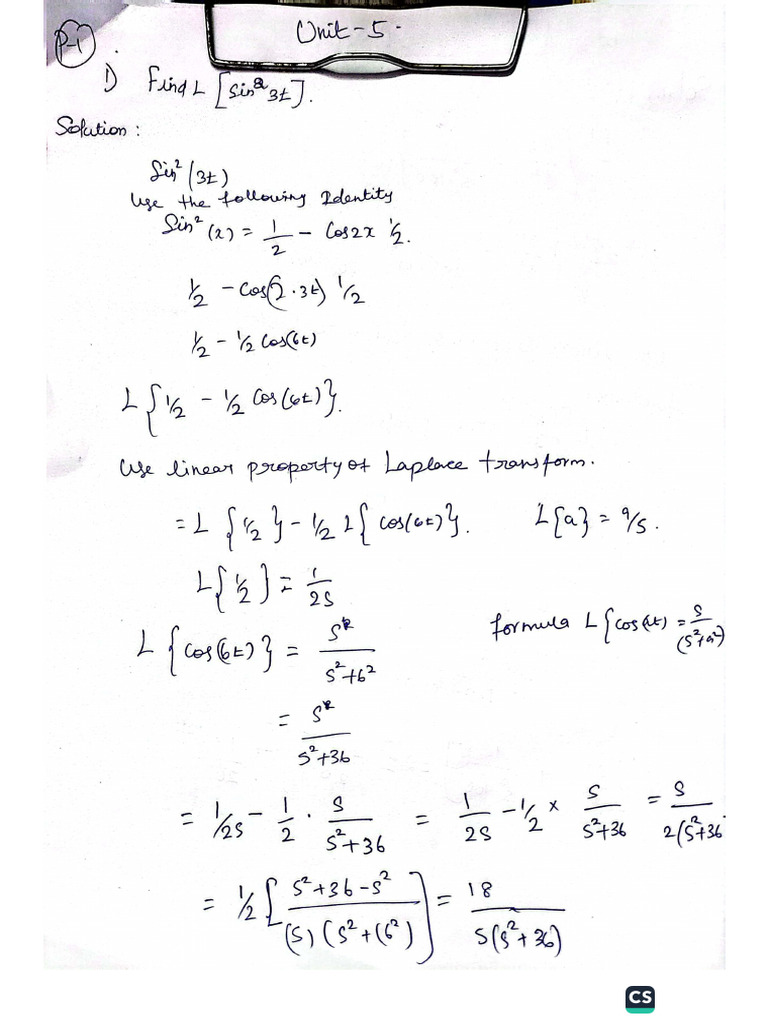 Unit-5.
P-1
1) Find L [sin² 3t].
Solution:
Sin²(3t)
Use the following Identity
Sin²(x) = 1/2 - Cos2x 1/2.
1/2 - Cos(2·3t) 1/2
1/2 - 1/2 Cos(6t)
L{1/2 - 1/2 Cos(6t)}.
Use linear property of Laplace transform.
= L {1/2} - 1/2 L{cos(6t)}. L{a} = a/s.
L{1/2} = 1/2s
L {cos(6t)} = s/s²+6² formula L{cos(at) = s/(s²+a²)
= s/s²+36
= 1/2s - 1/2 · s/s²+36 = 1/2s - 1/2 × s/s²+36 = s/2(s²+36
= 1/2 [s²+36-s²/(s)(s²+(6²)] = 18/s(s²+36)
CS